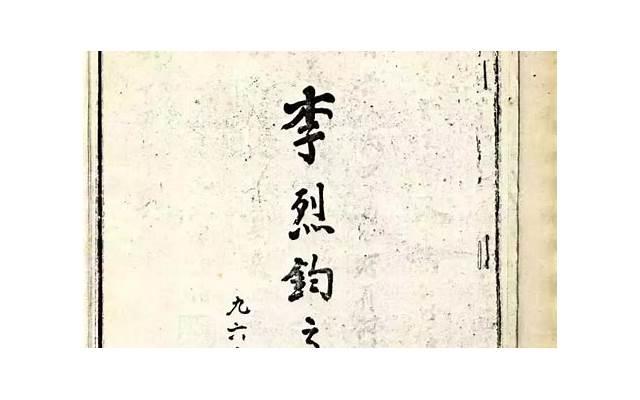 李烈鈞
九六